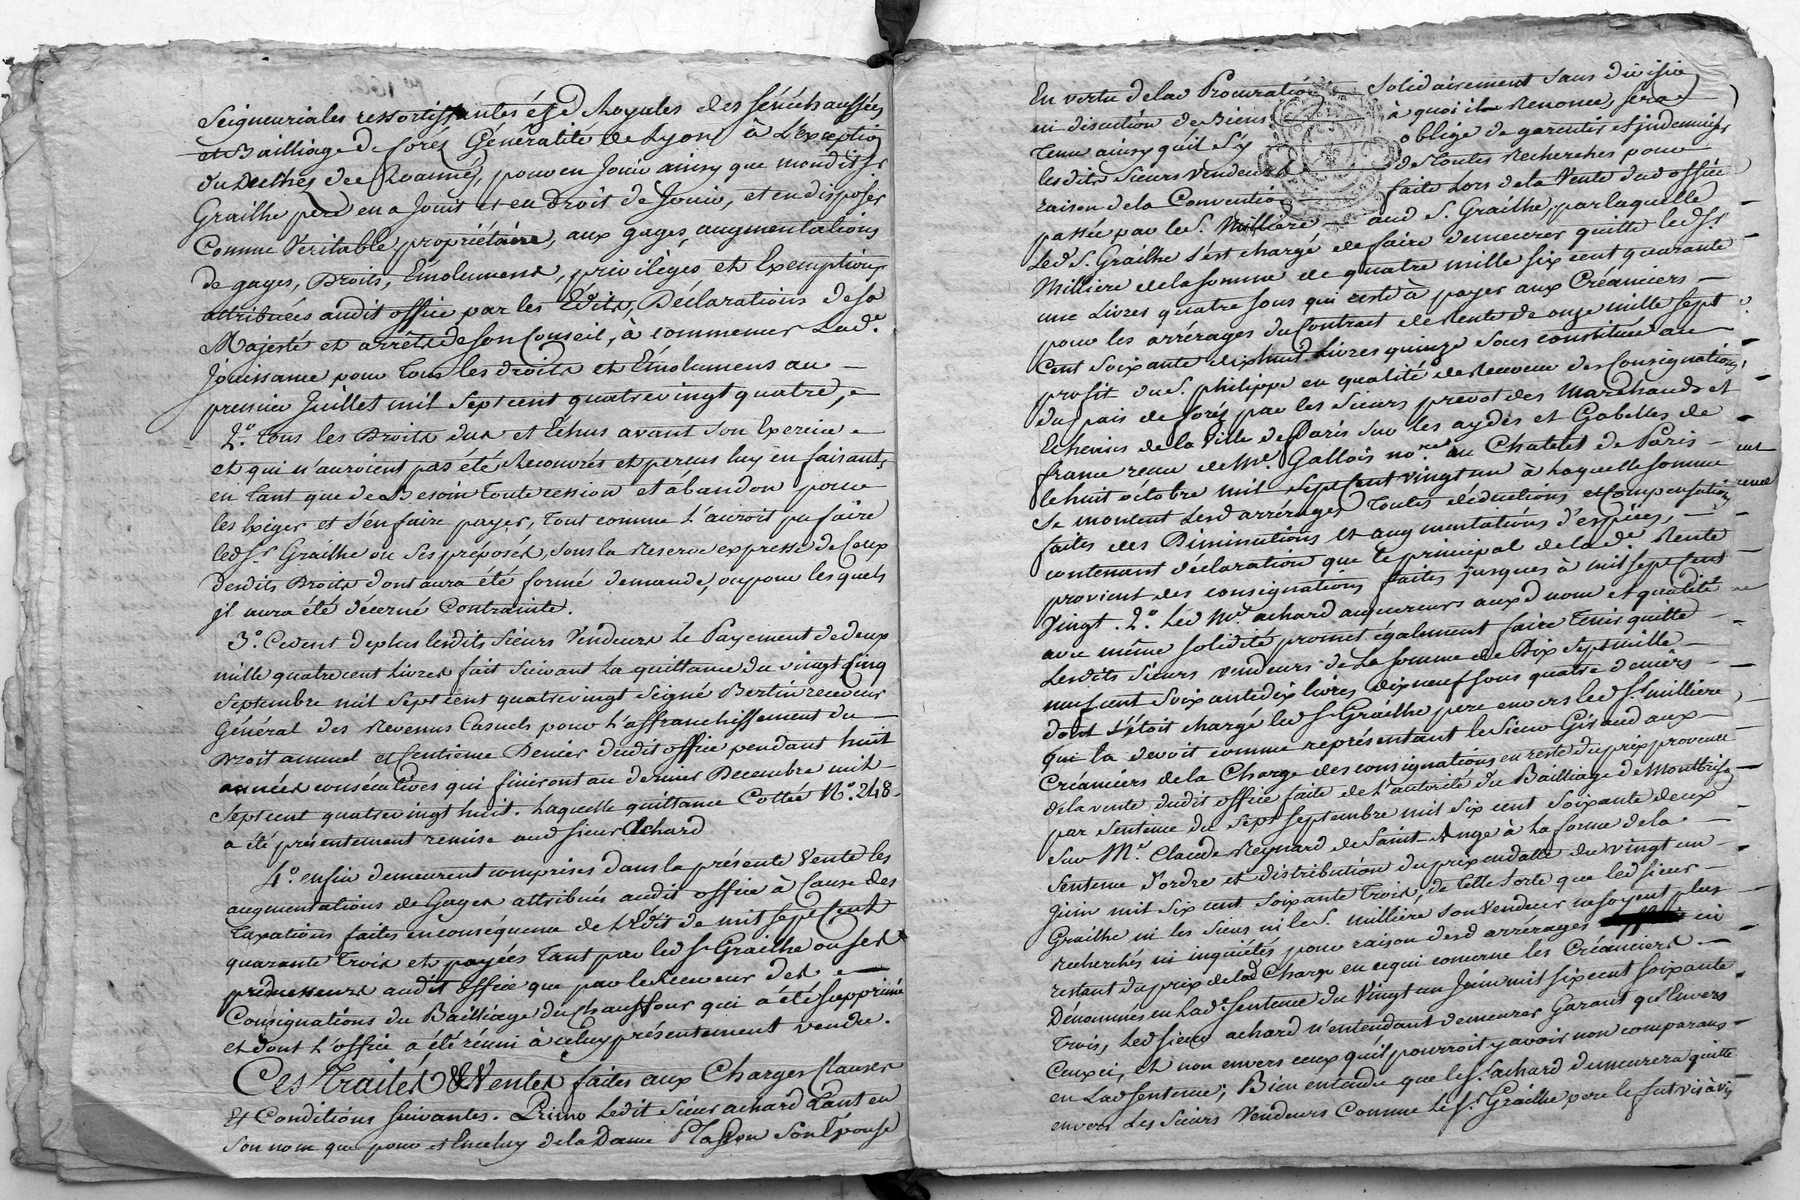 Seigneuriales ressortissantes ésd Royales des sénéchaussées
et Bailliage de forés Généralité de Lyon à L'exception
du Duché de Roannés, pour en Jouir ainsy que mondit Sr
Grailhe pere en a Jouit et eu droit de Jouir, et en disposer
Comme Véritable propriétaire, aux gages, augmentations
de gages, Droits, Emolumens, privileges et Exemptions
attribuées audit office par les Edits, Déclarations de sa
Majesté et arrêts de son Conseil, à commencer Lade
Jouissance pour tous les droits et Emolumens au —
premier Juillet mil Sept cent quatrevingt quatre,
2.° tous les Droits dus et Echus avant son Exercice
et qui n'auroient pas été Recouvrés et percus luy en faisants
en tant que de Besoin toute cession et abandon pour
les Exiger et s'en faire payer, tout comme L'auroit pu faire
led Sr Grailhe ou ses préposés, sous la reserve expresse de Ceux
desdits Droits dont aura été formé demande, ou pour lesquels
il aura été décerné Contrainte.
3.° Cedent de plus lesdits Sieurs Vendeurs le Payement de deux
mille quatre cent Livres fait suivant La quittance du vingt Cinq
Septembre mil Sept cent quatrevingt Signé Bertin receveur
Général des Revenus Casuels pour L'affranchissement du —
Droit annuel et Centieme Denier dudit office pendant huit
années consécutives qui finiront au dernier Decembre mil
Sept cent quatrevingt huit. Laquelle quittance Cottée N.° 248.
a été présentement remise aud sieur Achard
4.° enfin demeurent comprises dans la présente Vente les
augmentations de Gages attribués audit office à Cause des
Taxations faites en conséquence de L'Edit de mil sept Cent
quarante Trois et payées Tant par led Sr Grailhe ou ses
prédecesseurs audit office que par le Receveur des —
Consignations du Bailliage du Chauffour qui a été supprimé
et dont L'office a été réuni à celuy présentement vendu.
Ces Traités & Ventes faites aux Charges Clauses
Et Conditions suivantes. Primo Ledit Sieur achard Tant en
son nom que pour et Enceluy de la Dame Plasson son Epouse
En vertu de lad Procuration Solidairement sans division
ni discution de Biens à quoi il Renonce, sera
Tenu ainsy quil s'y oblige de garentir et indemniser
lesdits Sieurs Vendeurs de toutes Recherches pour
raison de la Convention faite Lors de la Vente dud office
passée par le S. Milliere aud S. Grailhe, par laquelle
Led S. Grailhe s'est chargé de faire demeurer quitte led Sr
Milliere de la somme de quatre mille six cent quarante
une Livres quatre sous qui reste à payer aux Créanciers —
pour les arrérages du Contract de Rente de onze mille sept
Cent soixante dixhuit Livres quinze Sous constitué au
profit du S. philippe en qualité de Receveur des Consignations
du pais de forés par les Sieurs prevot des Marchands et
Echevins de la Ville de Paris sur les aydes et Gabelles de
france recu de Me. Gallois nore. au Chatelet de Paris —
le huit octobre mil Sept Cent vingt un à Laquelle somme
se montent lesd arrérages Toutes déductions et compensations
faites des Diminutions et augmentations d'espèces, —
contenant déclaration que le principal de lade Rente
provient des consignations faites jusques à mil sept cent
Vingt. 2.° Led Mr. achard acquereur auxd nom et qualité
avec même solidité promet également faire Tenir quitte
Lesdits Sieurs vendeurs de La somme de Dix Sept mille
neuf cent soixante dix livres dix neuf sous quatre deniers
dont s'étoit chargé led Sr Grailhe pere envers led Sr milliere
qui la devoit comme représentant le Sieur Giraud aux
Créanciers de la Charge des consignations en reste du prix provenu
de la vente dudit office faite de l'autorité du Bailliage de Montbrison
par Sentence du Sept Septembre mil six cent soixante deux
Sur Mr. Claude Reynard de Saint Ange à la forme de la —
Sentence d'ordre et distribution du prix en datte du vingt un
Juin mil six cent soixante Trois, de telle sorte que led sieur
Grailhe ni les siens ni le S. milliere son vendeur ne soyent plus
recherchés ni inquiétés pour raison desd arrérages ni
restant du prix de lad Charge en ce qui concerne les Créanciers
Dénommés en Lade Sentence du Vingt un Juin mil six cent soixante
Trois, Led sieur achard n'entendant demeurer Garant qu'Envers
Ceux ci, et non envers ceux qu'il pourroit y avoir non comparans
en Lad sentence; Bien entendu que le S. achard demeurera quitte
envers Les Sieurs Vendeurs Comme le Sr Grailhe pere le fut vis à vis